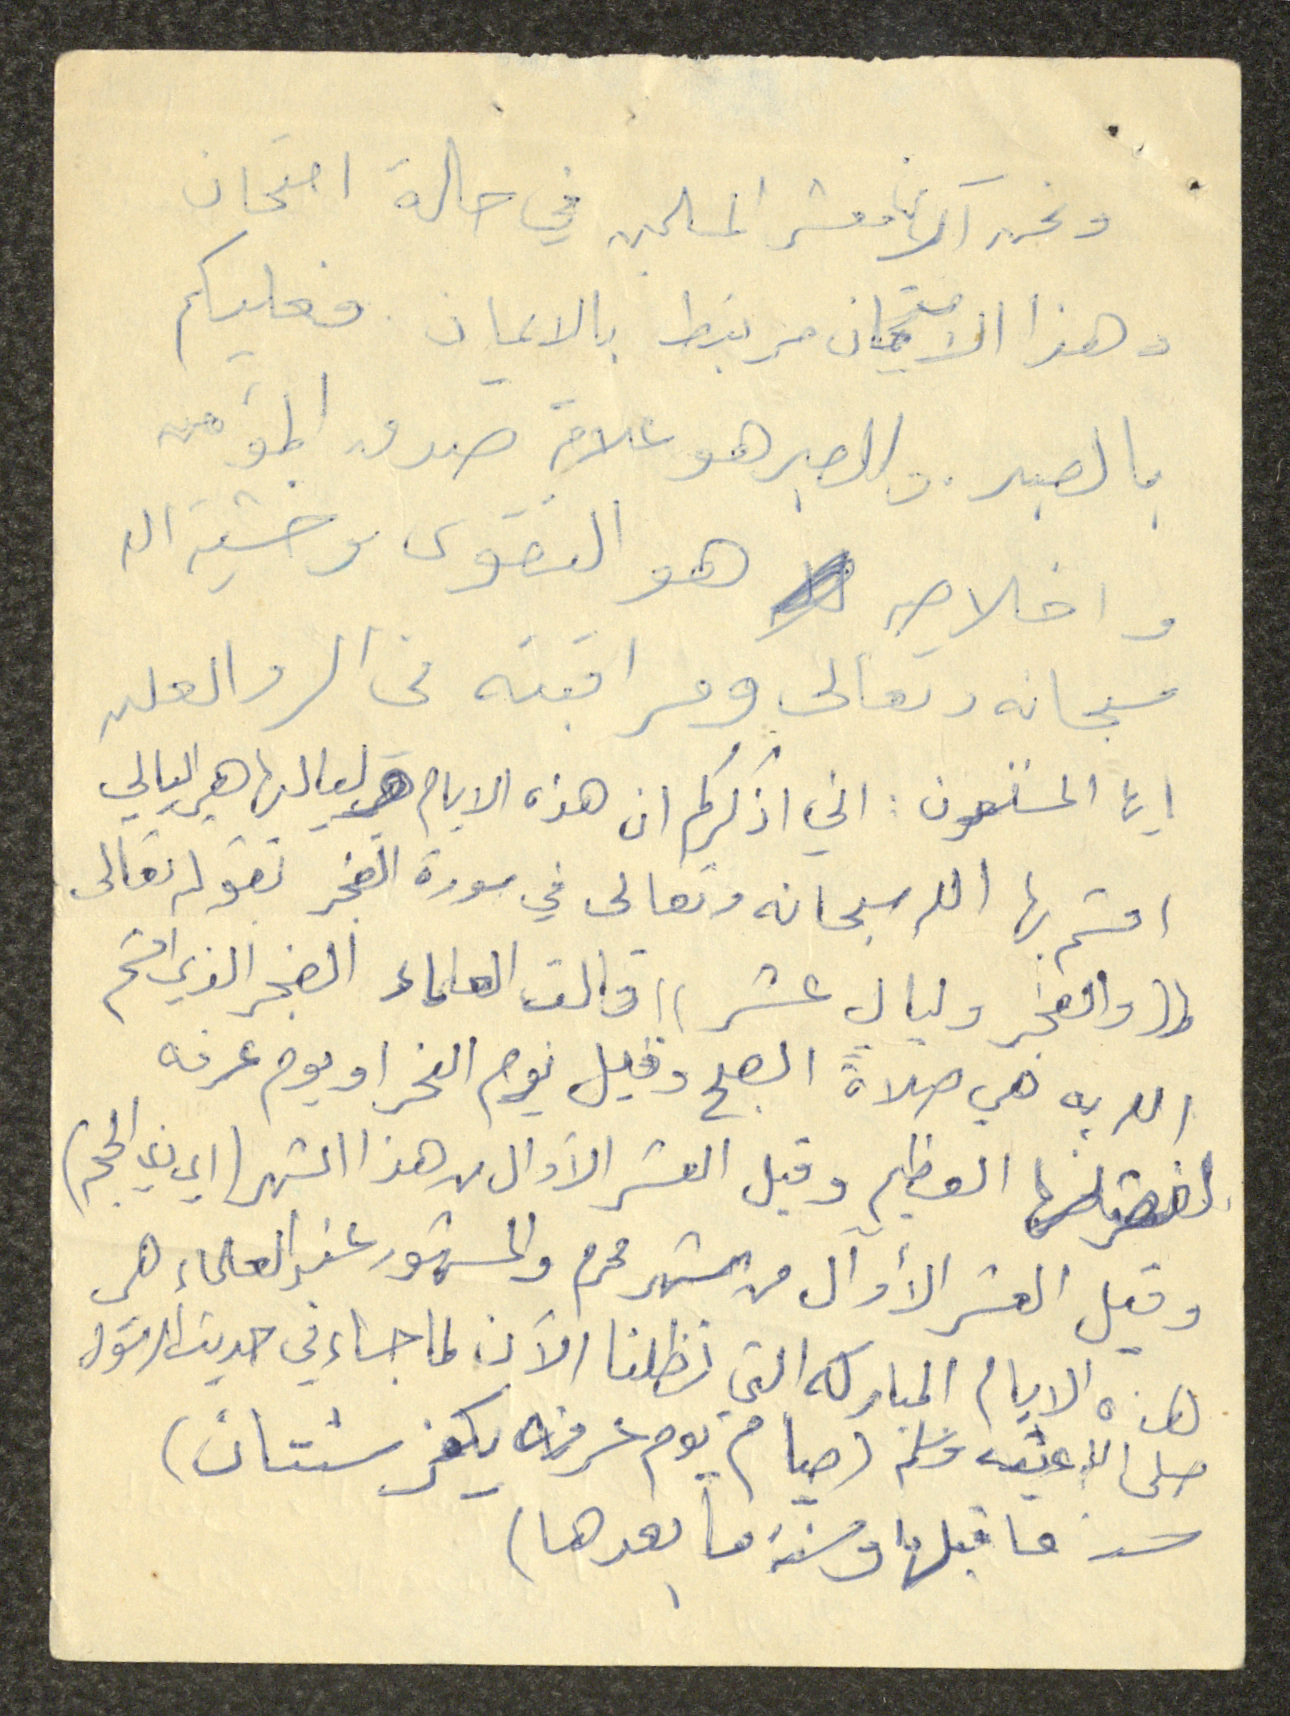 ونحن الآن معشر المسلمين في حالة امتحان
وهذا الامتحان مرتبط بالايمان. فعليكم
بالصبر. والصبر هو علامة صدق المؤمن
واخلاصه هو التقوى وخشية الله
سبحانه وتعالى ومراقبته في السر والعلن
ايها المستمعون: اني اذكركم ان هذه الايام لياليها هي اليالي
اقسم بها الله سبحانه وتعالى في سورة الفجر بقوله تعالى
((والفجر وليالٍ عشر)) قالت العلماء الفجر الذي اقسم
الله به هي صلاة الصبح وقيل يوم النحر او يوم عرفه
لفضلها العظيم وقيل العشر الأوال من هذا الشهر (اي ذي الحجة)
وقيل العشر الأوال من شهر محرم والمشهور عند العلماء هي
هذه الايام المباركه التي تظلنا الآن لما جاء في حديث الرسول
صلى الله عليه وسلم (صيام يوم عرفه يكفر سنتان)
سنة ما قبلها وسنة ما بعدها)